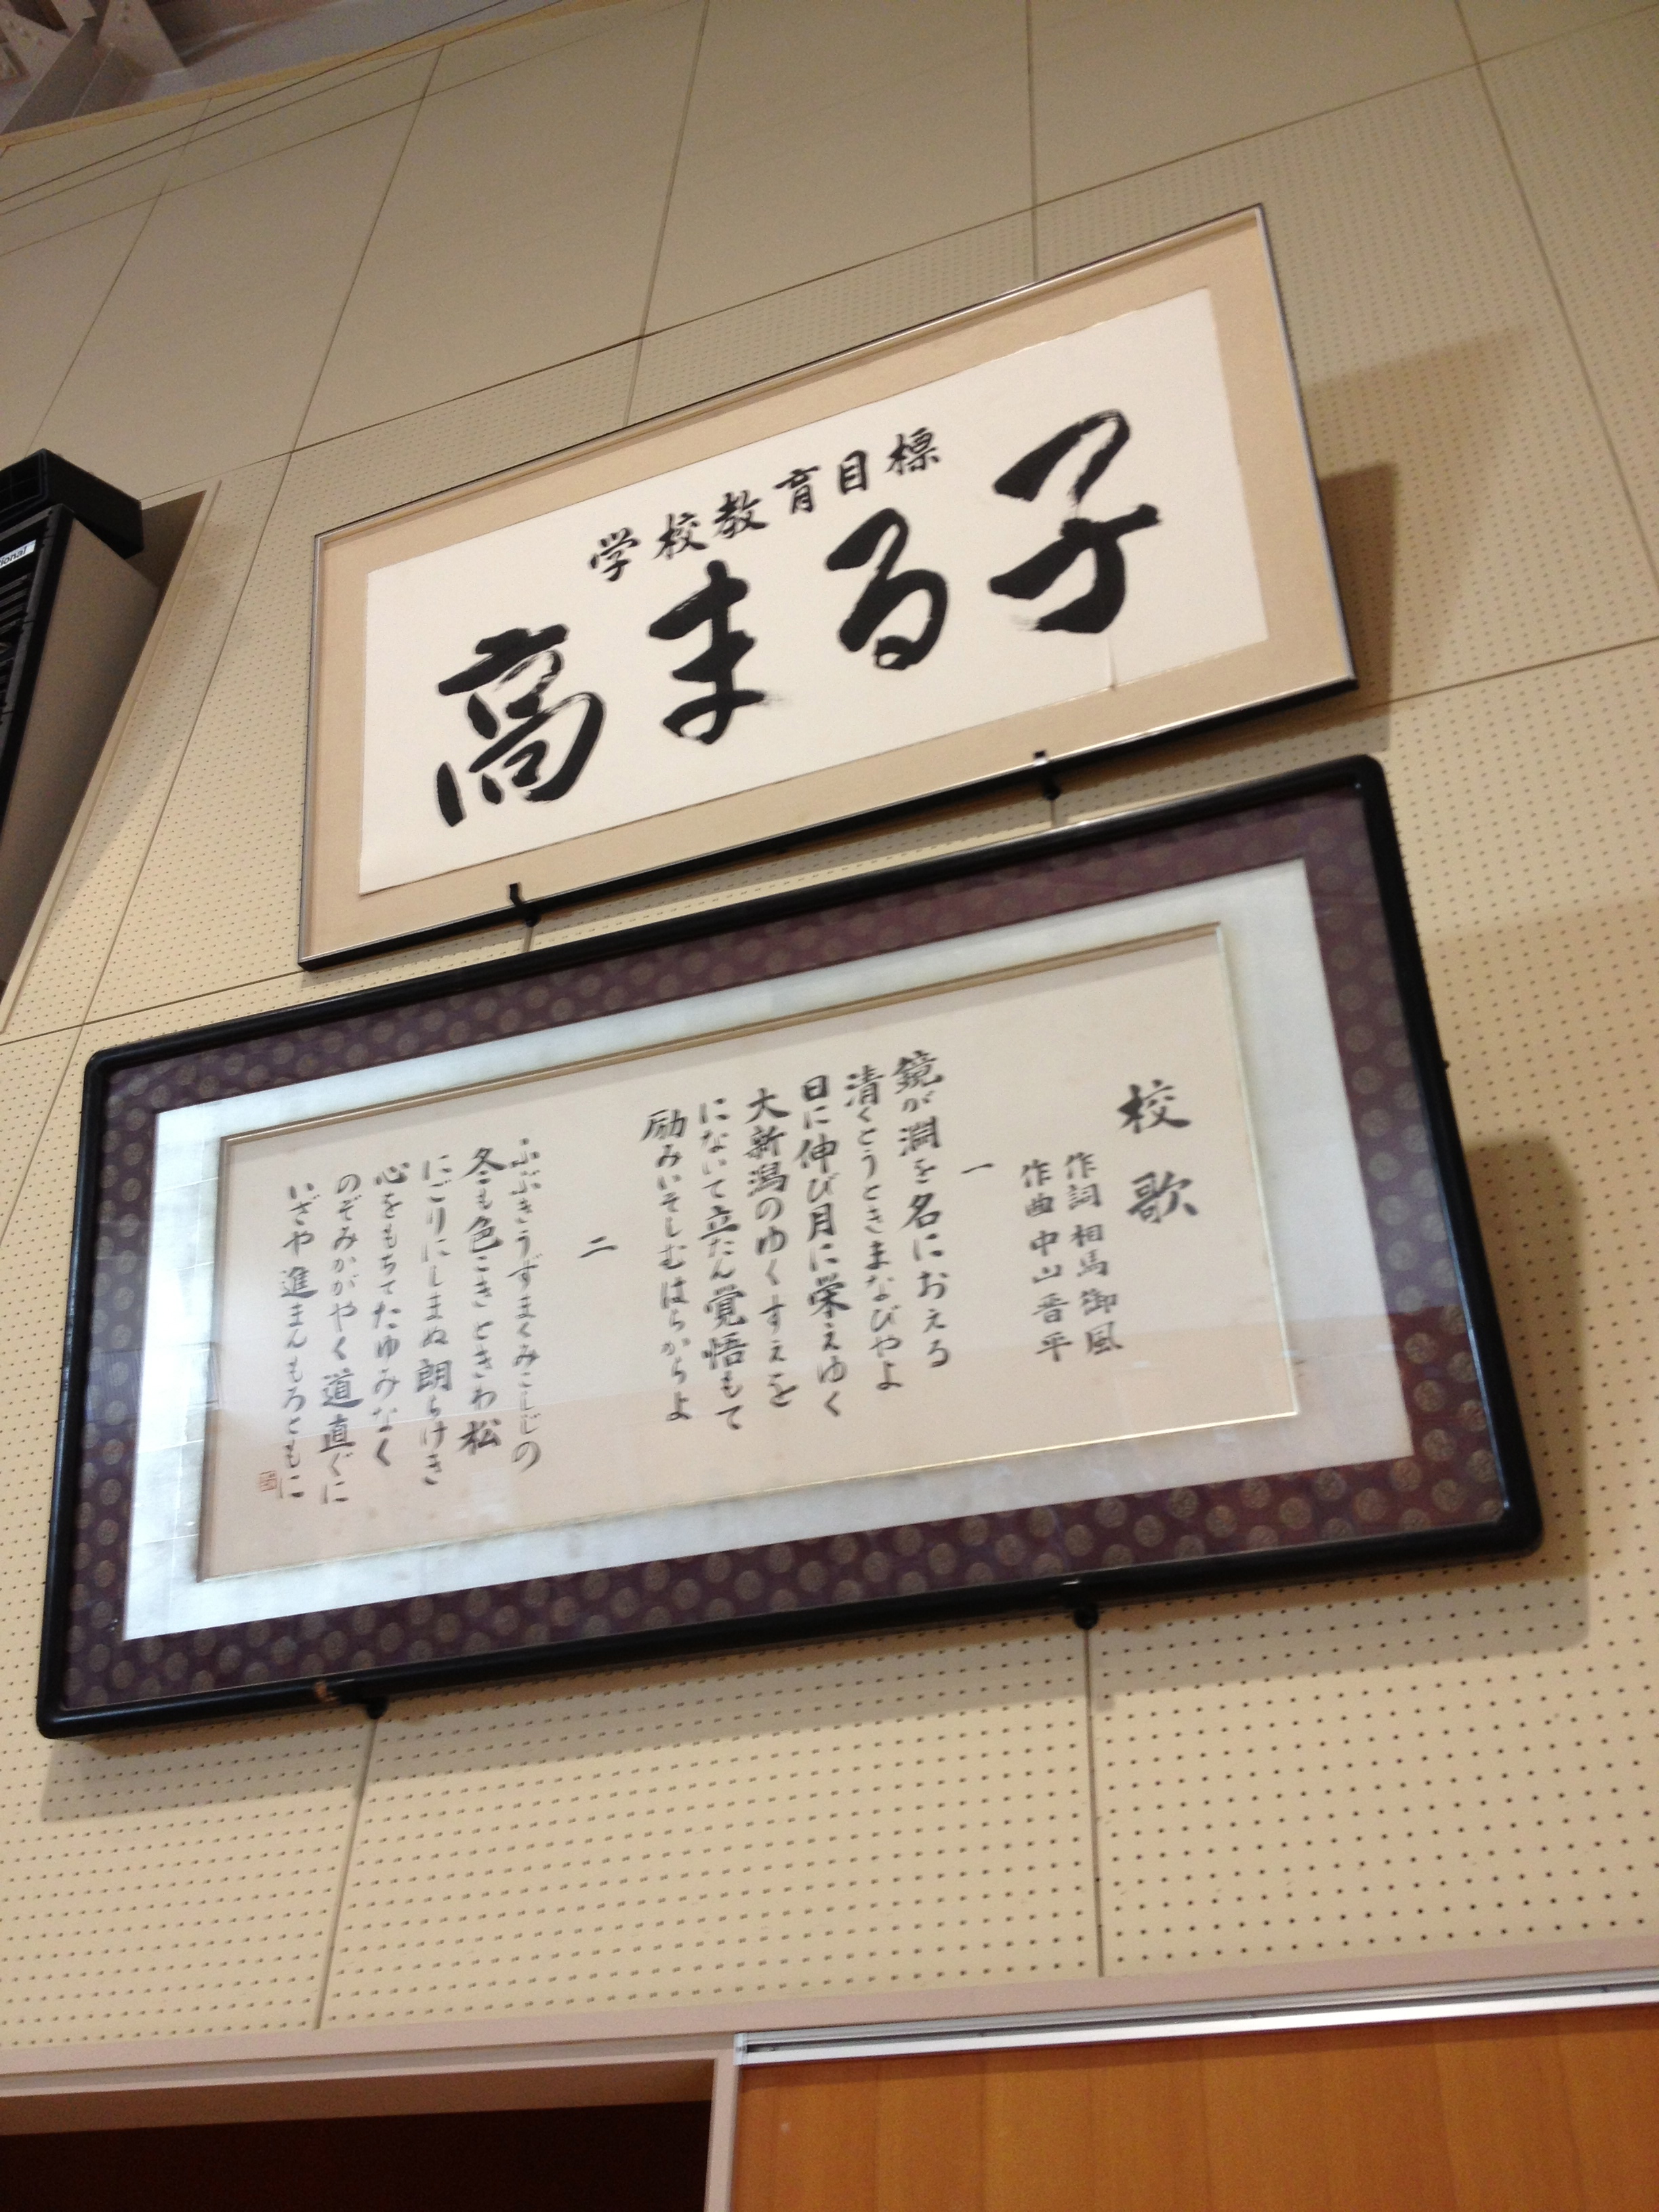 学校教育目標
高まる子
校歌
作詞 相馬御風
作曲 中山晋平
一
鏡が淵を名におえる
清くとうときまなびやよ
日に伸び月に栄えゆく
大新潟のゆくすえを
にないて立たん覚悟もて
励みいそしむはらからよ
二
ふぶきうずまくみこしじの
冬も色こきときわ松
にごりにしまぬ朗らけき
心をもちてたゆみなく
のぞみかがやく道直ぐに
いざや進まんもろともに
ional